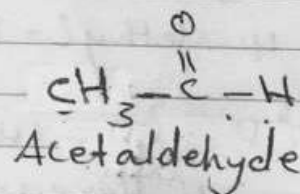 O
||
CH3-C-H
Acetaldehyde